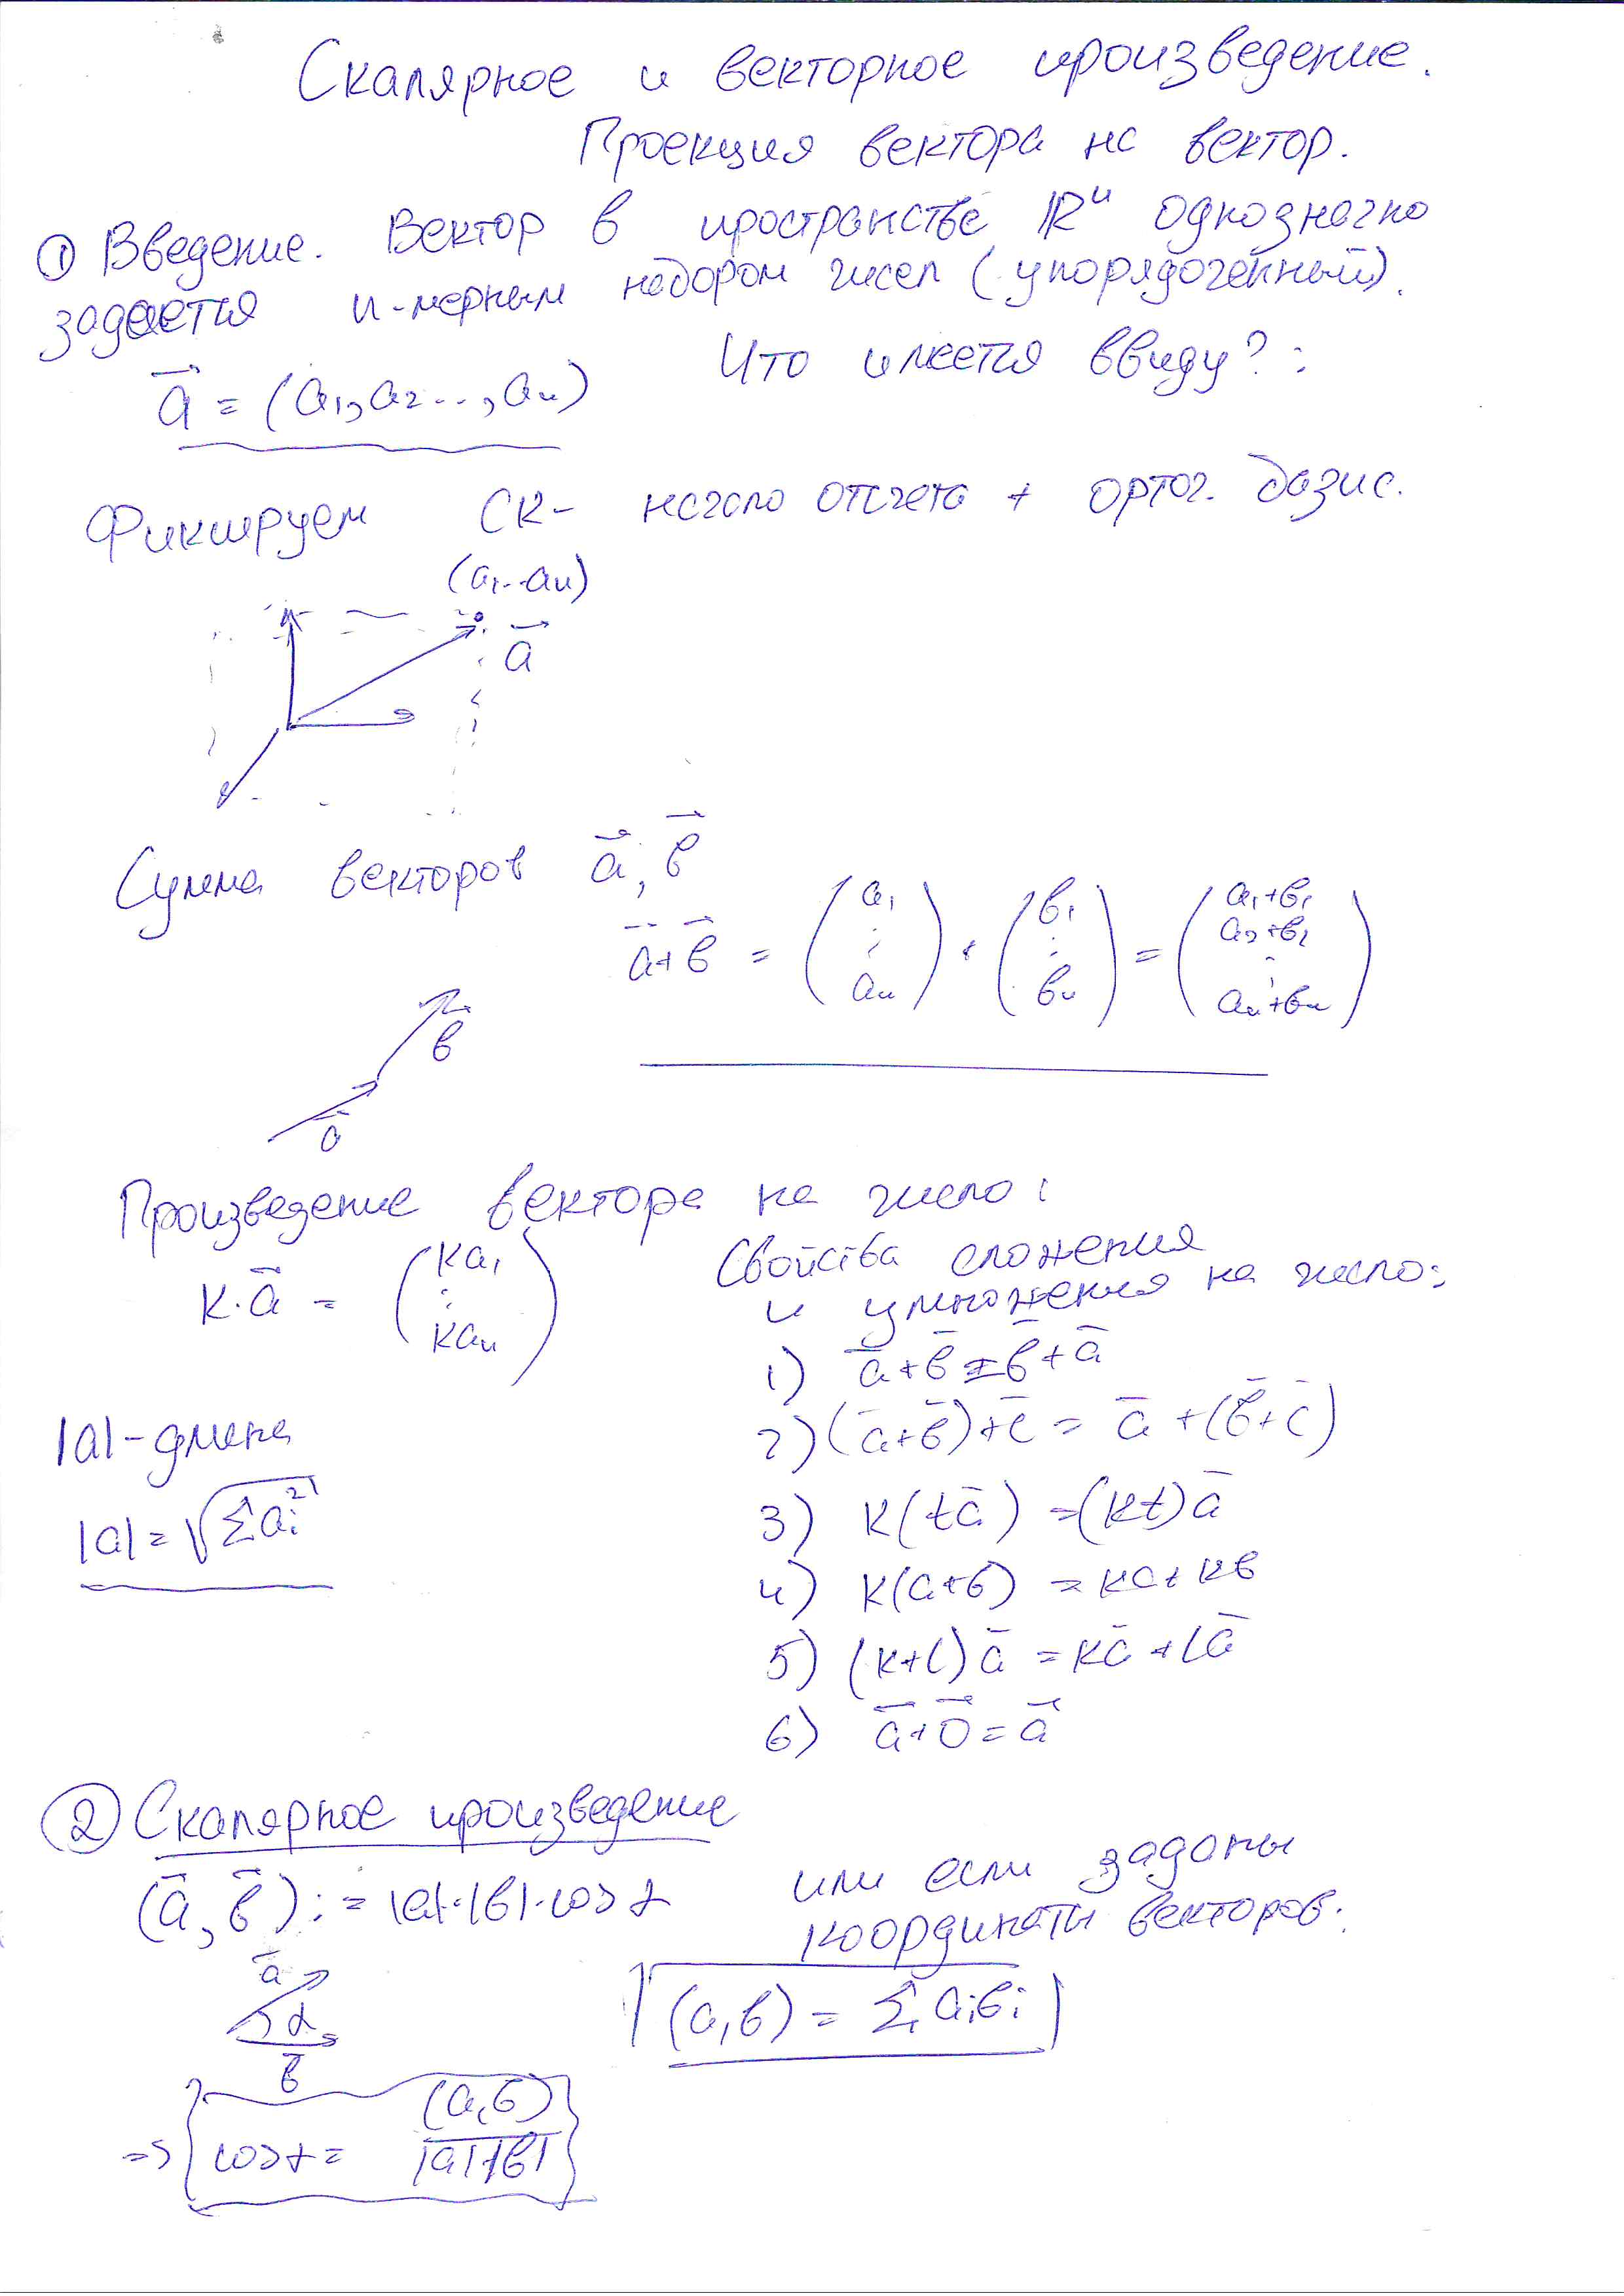 Скалярное и векторное произведение.
Проекция вектора на вектор.
① Введение. Вектор в пространстве ℝⁿ однозначно
задается n-мерным набором чисел (упорядоченный).
a⃗ = (a₁, a₂..., aₙ)
Что имеется ввиду?:
Фиксируем СК - начало отсчета + ортог. базис.
(a₁..aₙ)
a⃗
Сумма векторов a⃗, b⃗
a⃗+b⃗ = (a₁ ⋮ aₙ) + (b₁ ⋮ bₙ) = (a₁+b₁ a₂+b₂ ⋮ aₙ+bₙ)
b⃗
a⃗
Произведение вектора на число:
k·a⃗ = (ka₁ ⋮ kaₙ)
Свойства сложения
и умножения на число:
1) a̅+b̅=b̅+a̅
2) (a̅+b̅)+c̅ = a̅+(b̅+c̅)
3) k(ta̅) =(kt)a̅
4) k(a+b) = ka+kb
5) (k+l)a̅ = ka̅+la̅
6) a⃗+0⃗=a⃗
|a|-длина
|a|=√Σaᵢ²
② Скалярное произведение
(a̅, b̅):=|a|·|b|·cos α
a̅
α
b̅
или если заданы
координаты векторов.
(a,b) = Σ aᵢbᵢ
=> cos α = (a,b) / |a|·|b|